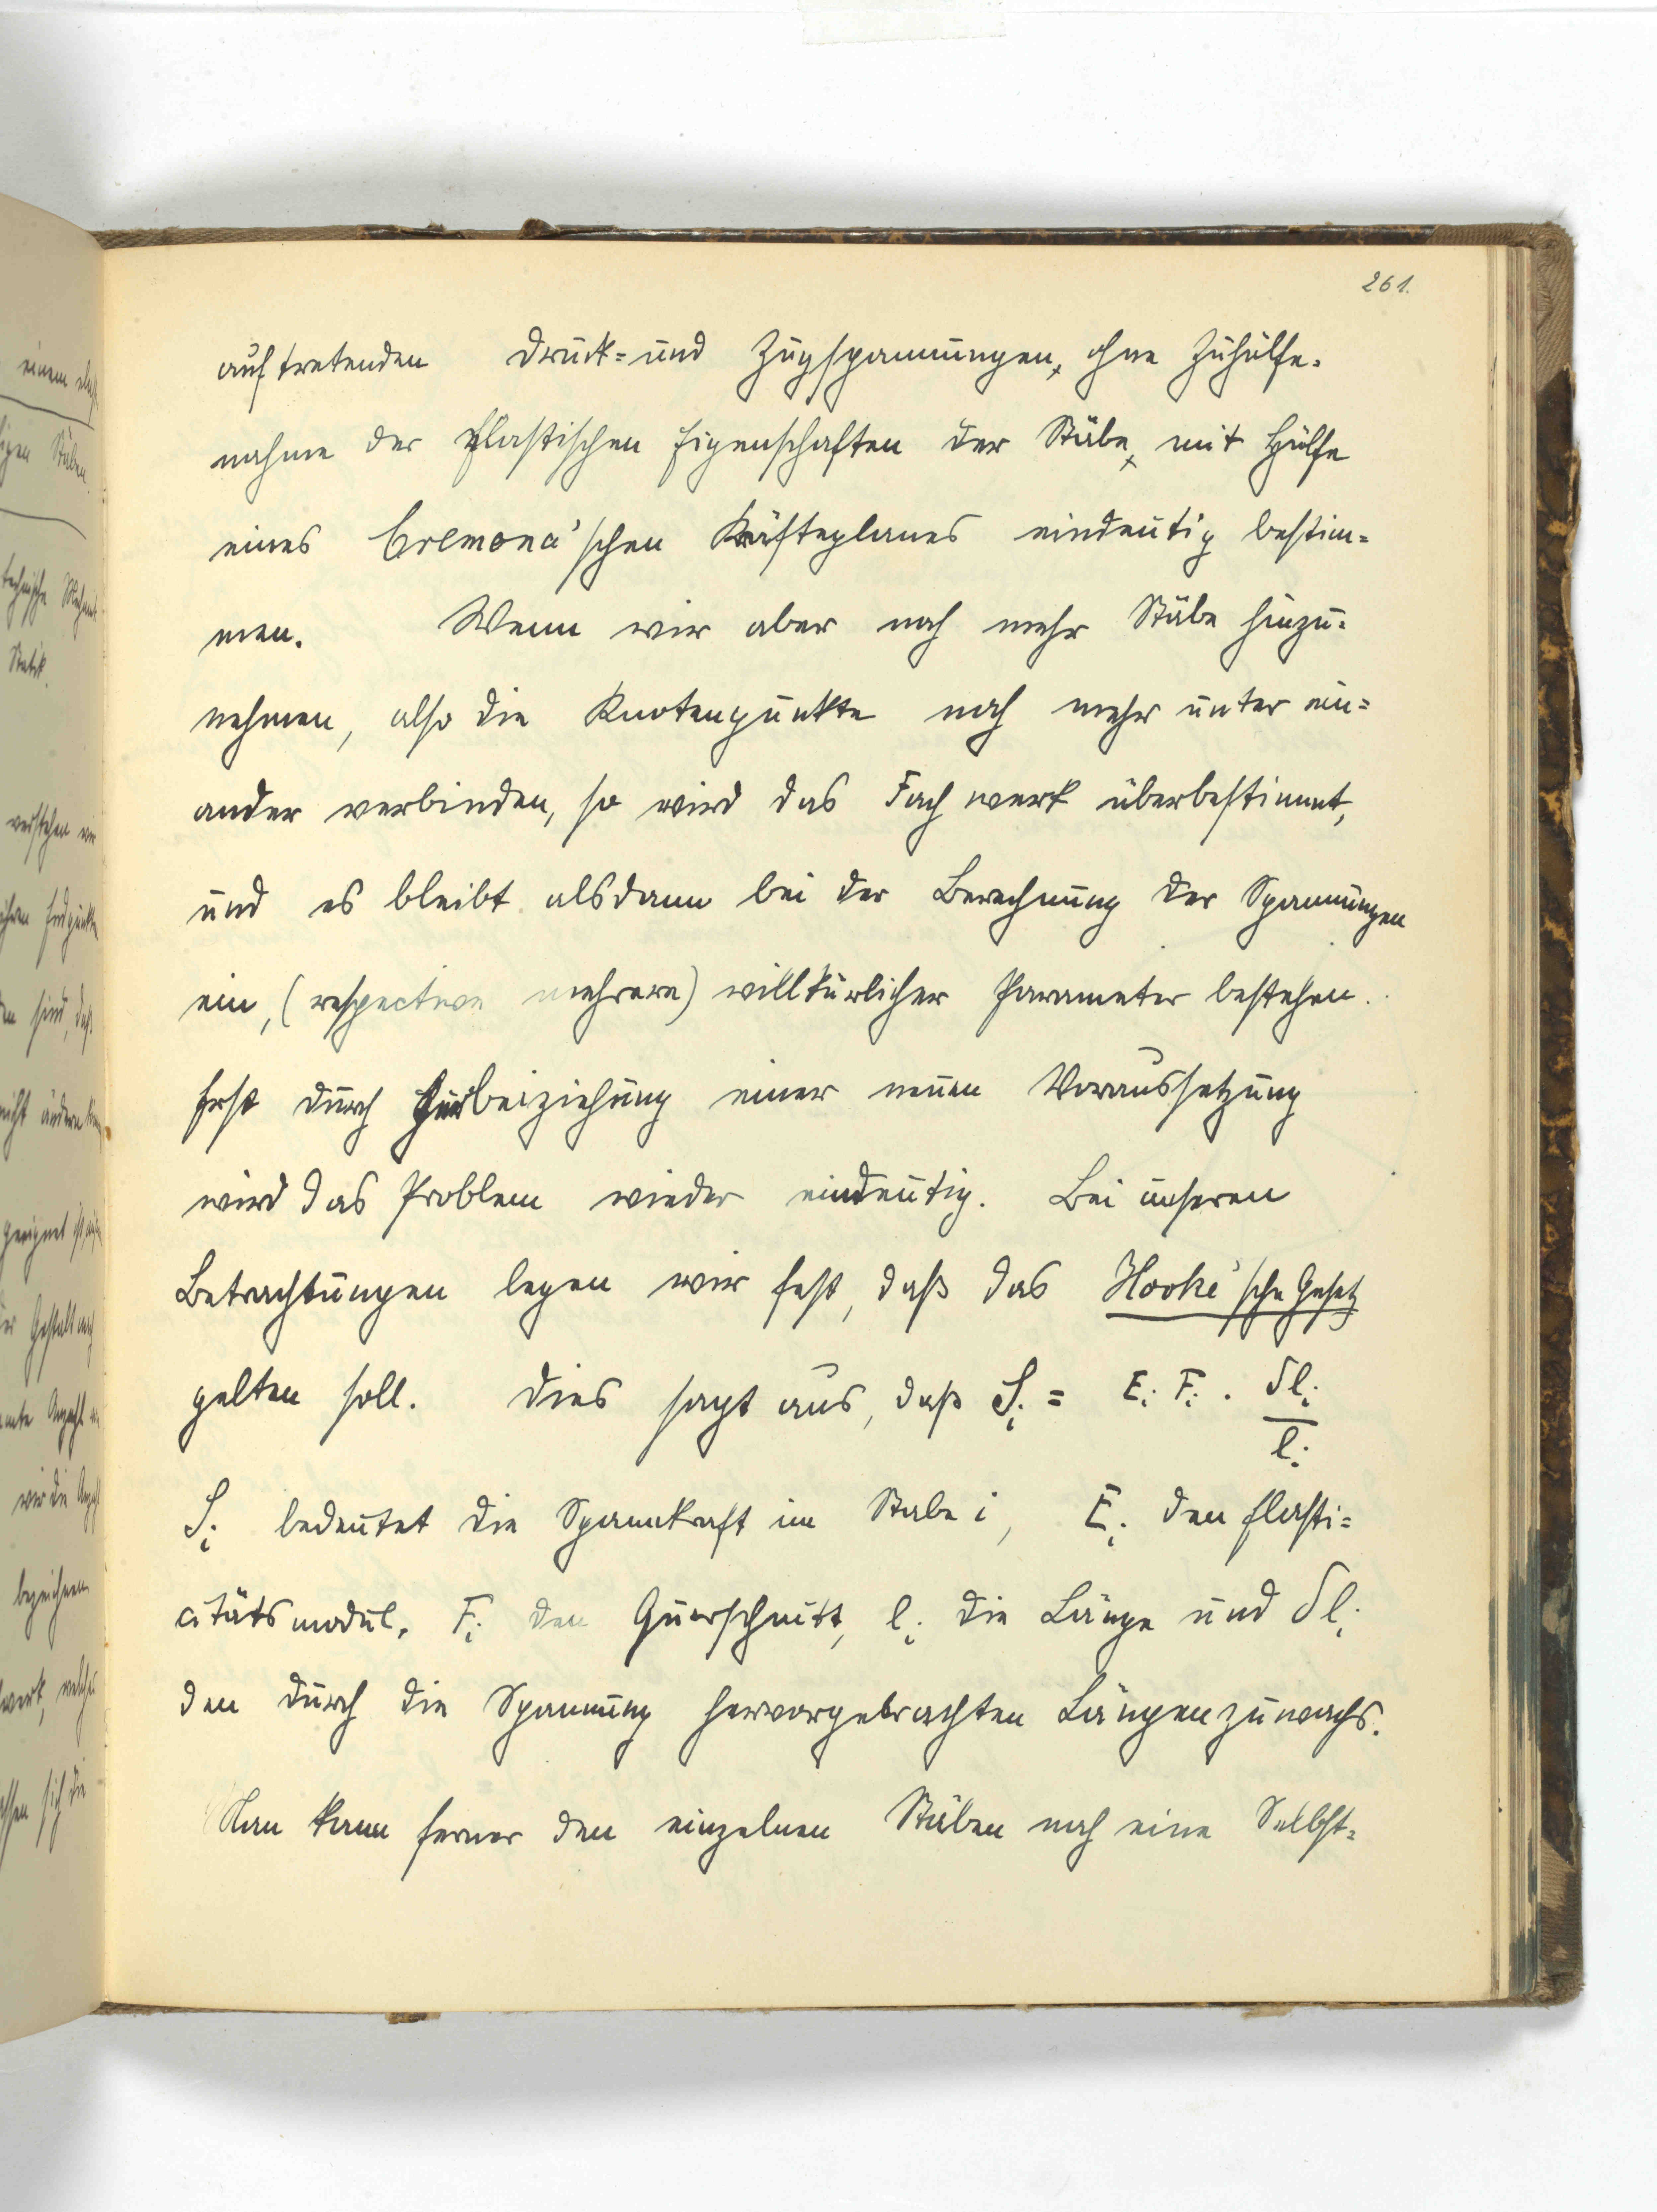 261.
auftretenden Druck= und Zugspannungen, ohne Zuhülfe=
nahme der elastischen Eigenschaften der Stäbe, mit Hülfe
eines Cremona'schen Kräfteplanes eindeutig bestim=
men. Wenn wir aber noch mehr Stäbe hinzu=
nehmen, also die Knotenpunkte noch mehr unter ein=
ander verbinden, so wird das Fachwerk überbestimmt,
und es bleibt alsdann bei der Berechnung der Spannungen
ein, (respective mehrere) willkürlicher Parameter bestehen.
Erst durch Hinbeiziehung einer neuen Voraussetzung
wird das Problem wieder eindeutig. Bei unseren
Betrachtungen legen wir fest, daß das Hooke'sche Gesetz
gelten soll. Dies sagt aus, daß Sᵢ = Eᵢ Fᵢ · δlᵢ / lᵢ
Sᵢ bedeutet die Spannkraft im Stabe i, Eᵢ den Elasti=
citätsmodul, Fᵢ den Querschnitt, lᵢ die Länge und δlᵢ
den durch die Spannung hervorgebrachten Längenzuwachs.
Man kann ferner den einzelnen Stäben noch eine Selbst=